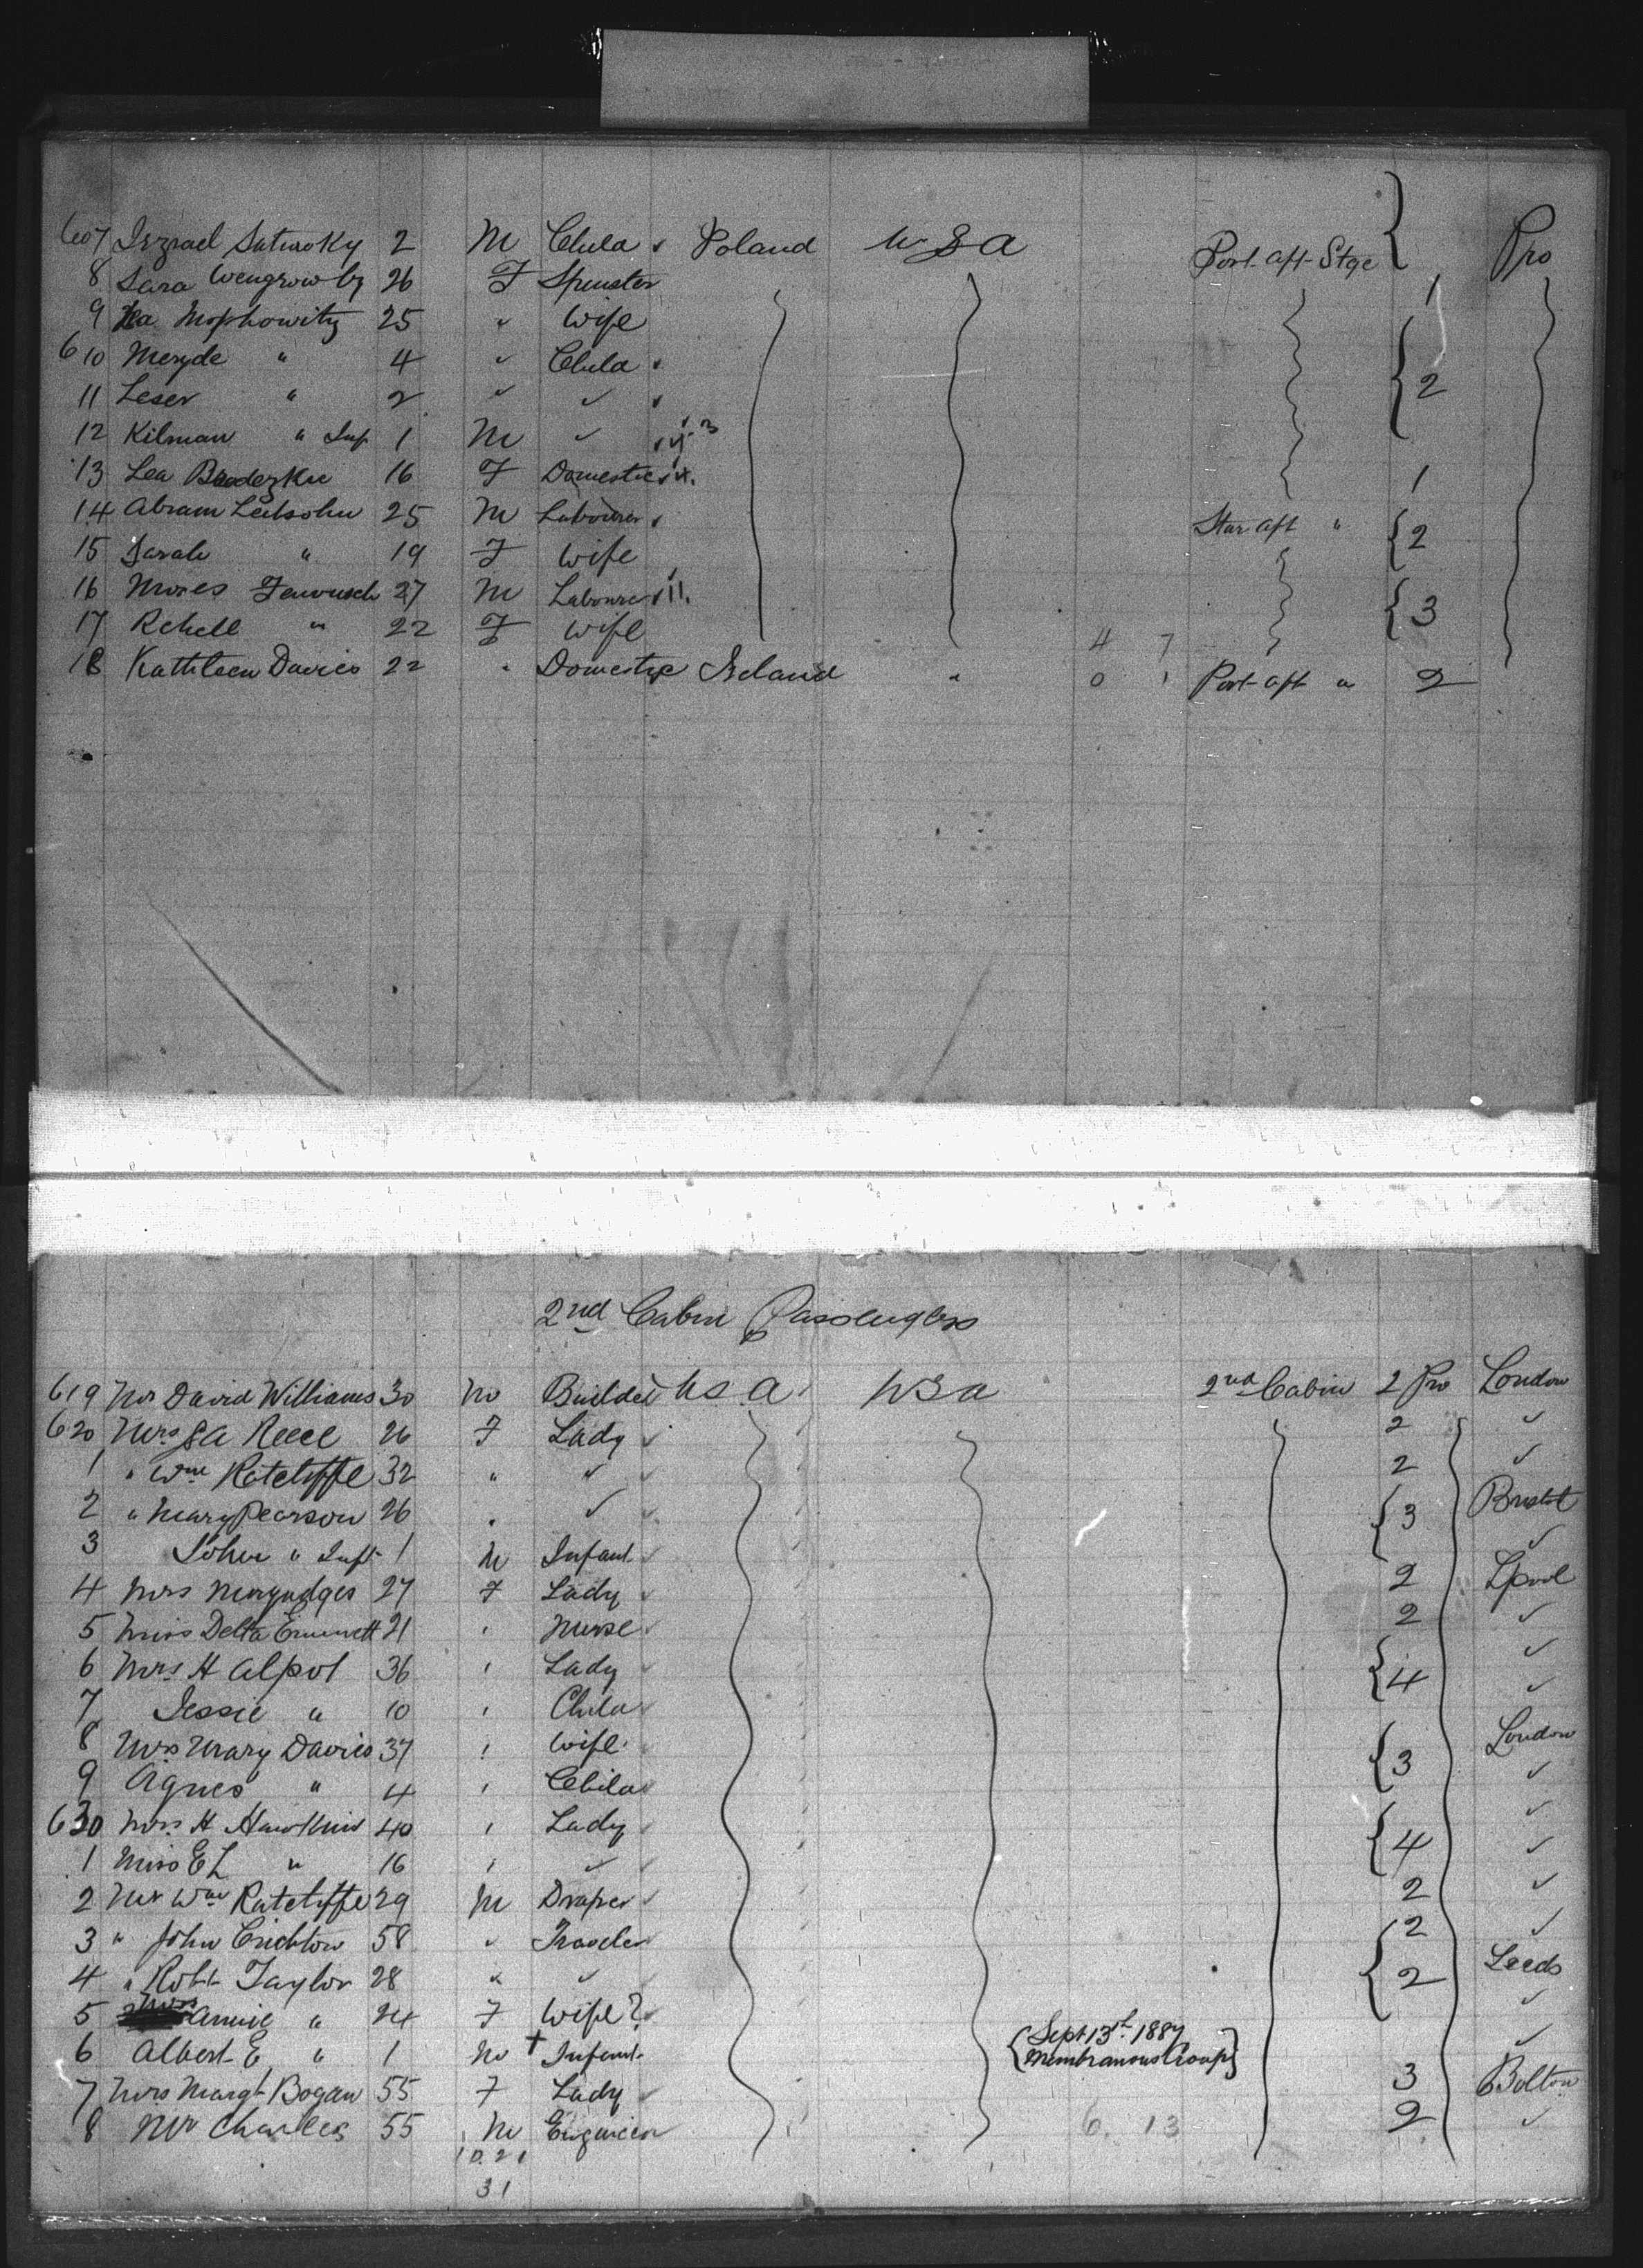 607 Iszrael Satinoky 2 M Child Poland USA Port aft Stge Pro
8 Sara Wengrow 26 F Spinster 1
9 Mophowitz 25 " Wife
610 Meryde " 4 " Child 2
11 Leser " 2 " "
12 Kilman " Inf 1 M "
13 Lea 16 F Domestic 1
14 Abram Leibsohn 25 M Labourer Star aft " 2
15 Sarah " 19 F Wife
16 Moses 27 M Labourer 11. 3
17 Rchell " 22 F Wife 4 7
18 Kathleen Davies 22 " Domestic Ireland " 0 1 Port aft " 2
2nd Cabin Passengers
619 Mr David Williams 30 M Builder USA USA 2nd Cabin 2 Pro London
620 Mrs S A Reece 26 F Lady 2 "
1 " Wm Ratcliffe 32 " " 2 "
2 " Mary Pearson 26 " " 3 Bristol
3 John " Inft 1 M Infant "
4 Mrs 27 F Lady 2 Lpool
5 Miss Delta Emmett 21 " Nurse 2 "
6 Mrs H Alpot 36 " Lady 4 "
7 Jessie " 10 " Child "
8 Mrs Mary Davies 37 " Wife 3 London
9 Agnes " 4 " Child "
630 Mrs H Hawkins 40 " Lady 4 "
1 Miss E L " 16 " " "
2 Mr Wm Ratclyffe 29 M Draper 2 "
3 " John Crichton 58 " Traveler 2 "
4 " Robt Taylor 28 " " 2 Leeds
5 Mrs Annie " 24 F Wife? "
6 Albert E " 1 M + Infant {Sept 13th 1887 Membranous Croup} "
7 Mrs Margt Bogan 55 F Lady 3 Bolton
8 Mr Charles 55 M Engineer 6. 13 2 "
10 21
31